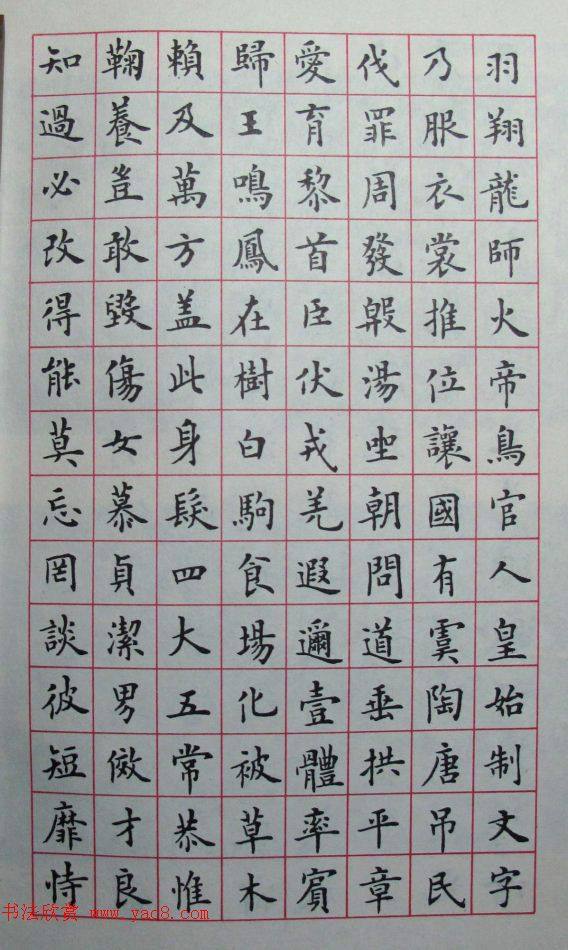 羽翔龍師火帝鳥官人皇始制文字
乃服衣裳推位讓國有虞陶唐吊民
伐罪周發殷湯坐朝問道垂拱平章
愛育黎首臣伏戎羌遐邇壹體率賓
歸王鳴鳳在樹白駒食場化被草木
賴及萬方盖此身髮四大五常恭惟
鞠養豈敢毀傷女慕貞潔男效才良
知過必改得能莫忘罔談彼短靡恃
书法欣赏 www.yac8.com